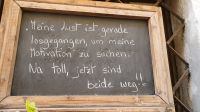 Meine Lust ist gerade
losgegangen, um meine
Motivation zu suchen.
Na toll, jetzt sind
beide weg!!